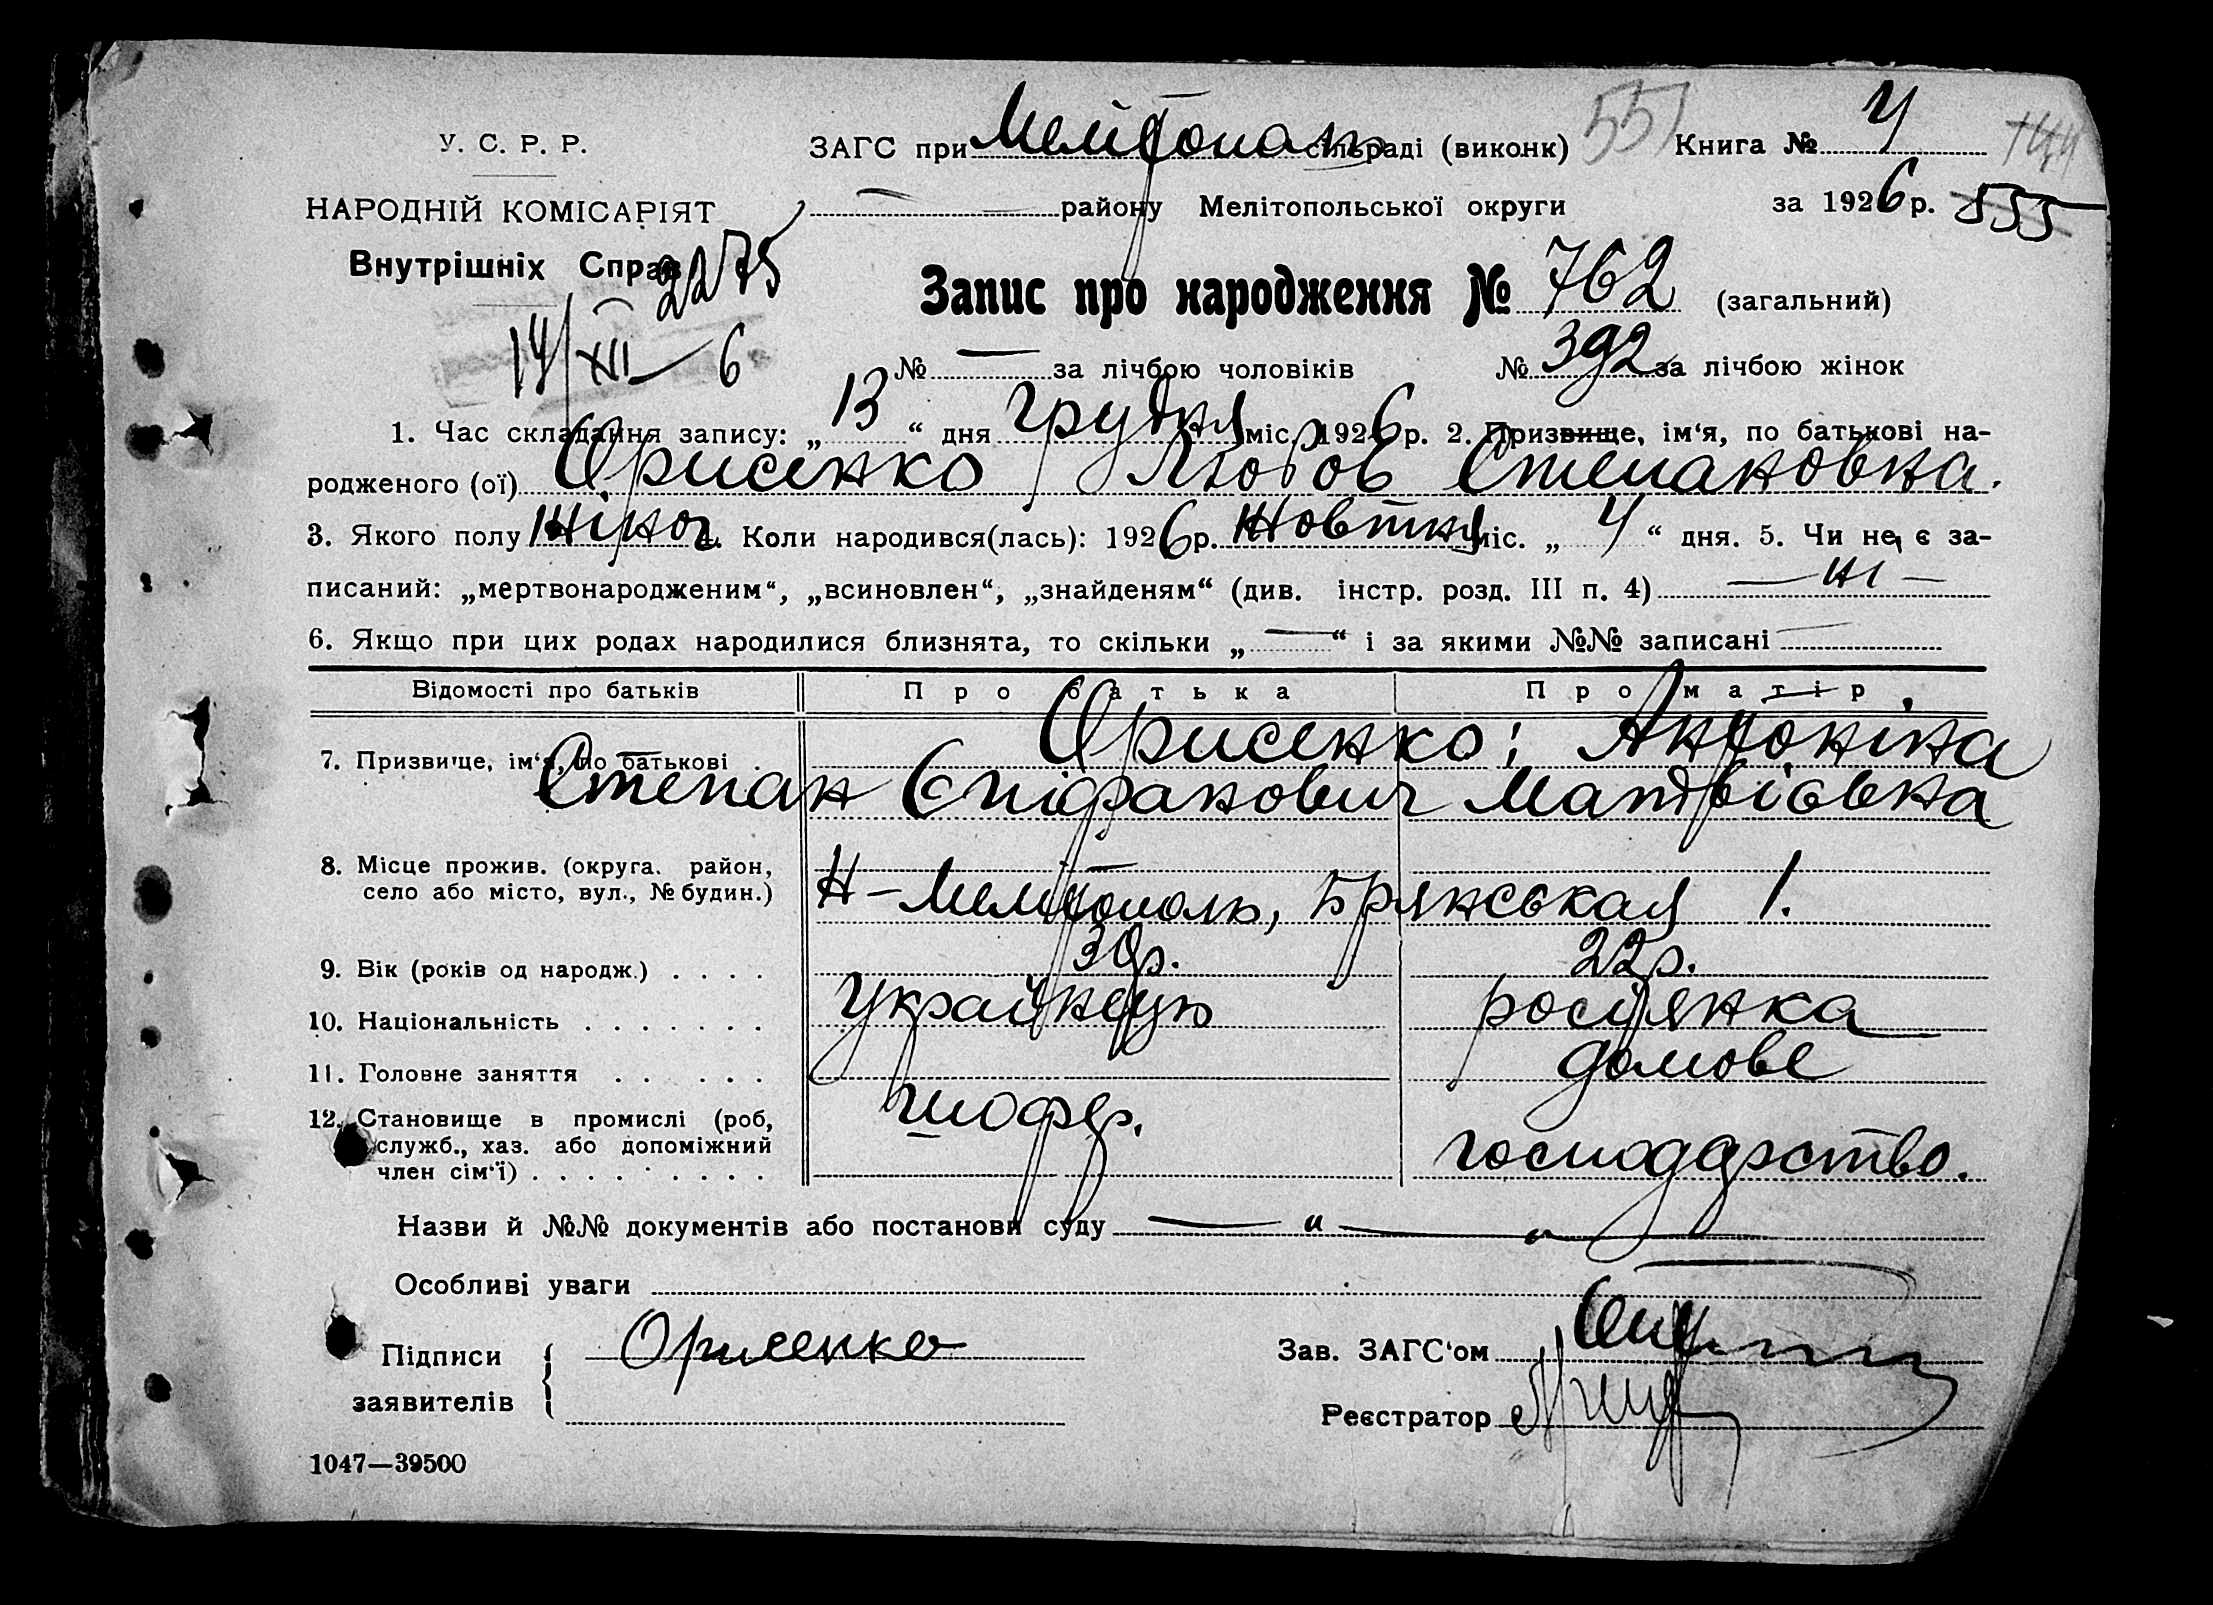 У. С. Р. Р.
НАРОДНІЙ КОМІСАРІЯТ
Внутрішніх Справ
2275
14/XII – 6
ЗАГС при Мелітополь сільраді (виконк) 551 Книга № 4
144
— району Мелітопольської округи за 1926 р. 555
Запис про народження № 762 (загальний)
№ — за лічбою чоловіків № 392 за лічбою жінок
1. Час складання запису: „13“ дня грудня міс. 1926 р. 2. Призвище, ім‘я, по батькові на-
родженого (ої) Орисенко Любов Степановна.
3. Якого полу жіноч. Коли народився(лась): 1926 р. жовтня міс. „4“ дня. 5. Чи не є за-
писаний: „мертвонародженим“, „всиновлен“, „знайденям“ (див. інстр. розд. III п. 4) — ні —
6. Якщо при цих родах народилися близнята, то скільки „—“ і за якими №№ записані —
Відомості про батьків Про батька Про матір
7. Призвище, ім‘я, по батькові . Орисенко; Антоніна
Степан Єпіфанович Матвієвна
8. Місце прожив. (округа, район,
село або місто, вул., № будин.) Н-Мелітополь, Брянськая 1.
9. Вік (років од народж.) . . . . 30р. 22р.
10. Національність . . . . . . . Українець росіянка
11. Головне заняття . . . . . . шофер. домове
12. Становище в промислі (роб,
служб., хаз. або допоміжний
член сім‘ї) . . . . . . . . господарство.
Назви й №№ документів або постанови суду — „ — „ —
Особливі уваги
Підписи
заявителів
Орисенко
Зав. ЗАГС‘ом
Реєстратор
1047—39500